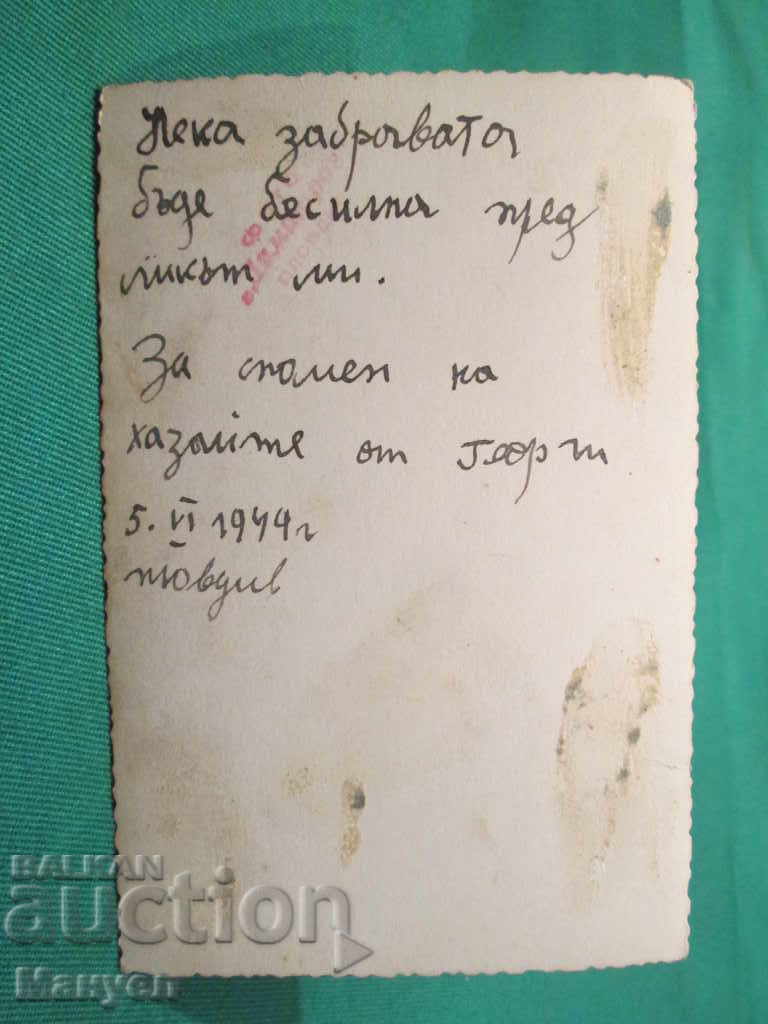 Нека забравата
бъде бесилна пред
ликът ми.
За спомен на
хазаите от Георги
5. VI 1944 г
Пловдив
BALKAN
auction
Макуел